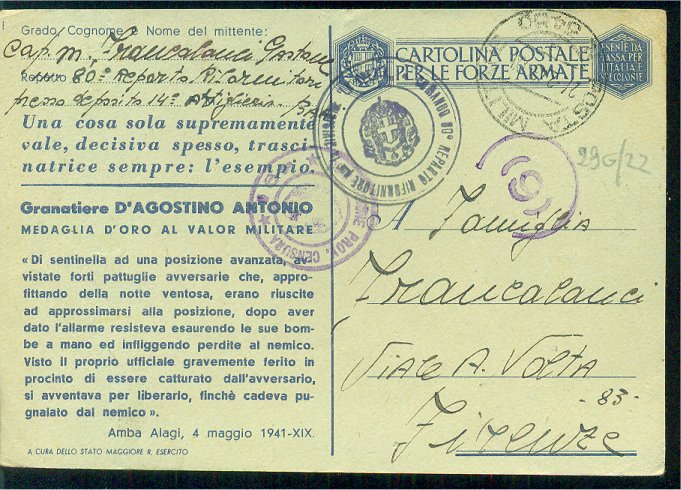 Grado, Cognome e Nome del mittente:
Cap. m. Francalanci Gastone
Reparto 80° Reparto Rifornitore
presso deposito 14° Artiglieria
Una cosa sola supremamente
vale, decisiva spesso, trasci-
natrice sempre: l'esempio.
Granatiere D'AGOSTINO ANTONIO
MEDAGLIA D'ORO AL VALOR MILITARE
« Di sentinella ad una posizione avanzata, av-
vistate forti pattuglie avversarie che, appro-
fittando della notte ventosa, erano riuscite
ad approssimarsi alla posizione, dopo aver
dato l'allarme resisteva esaurendo le sue bom-
be a mano ed infliggendo perdite al nemico.
Visto il proprio ufficiale gravemente ferito in
procinto di essere catturato dall'avversario,
si avventava per liberarlo, finchè cadeva pu-
gnalato dal nemico ».
Amba Alagi, 4 maggio 1941-XIX.
A CURA DELLO STATO MAGGIORE R. ESERCITO
CARTOLINA POSTALE
PER LE FORZE ARMATE
ESENTE DA
TASSA PER
L'ITALIA E
LE COLONIE
POSTA MIL
80° REPARTO RIFORNITORE
PROV. CENSURA
9
29G/22
A Famiglia
Francalanci
Viale A. Volta
- 83 -
Firenze